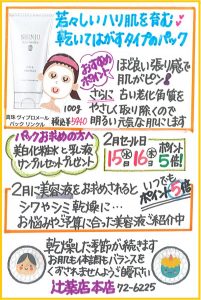 若々しいハリ肌を育む
乾いてはがすタイプのパック
SHINJU
おすすめポイント
ほど良い張り感で
肌がピン!
さらに 古い老化角質を
やさしく取り除くので
明るい元気な肌にします
100g
税込¥3940
真珠 ヴィプロメール
パック リンクル
パックお求めの方へ
美白化粧水と乳液
サンプルセットプレゼント
2月セール日
15(水)16(木)
ポイント
5倍!
2月に美容液をお求めになると いつでも
ポイント5倍
シワやシミ 乾燥に…
お悩みやご予算に合った美容液ご紹介中
乾燥した季節が続きます
お肌も体調もバランスを
くずされませんようご自愛下さい
辻薬店本店 72-6225